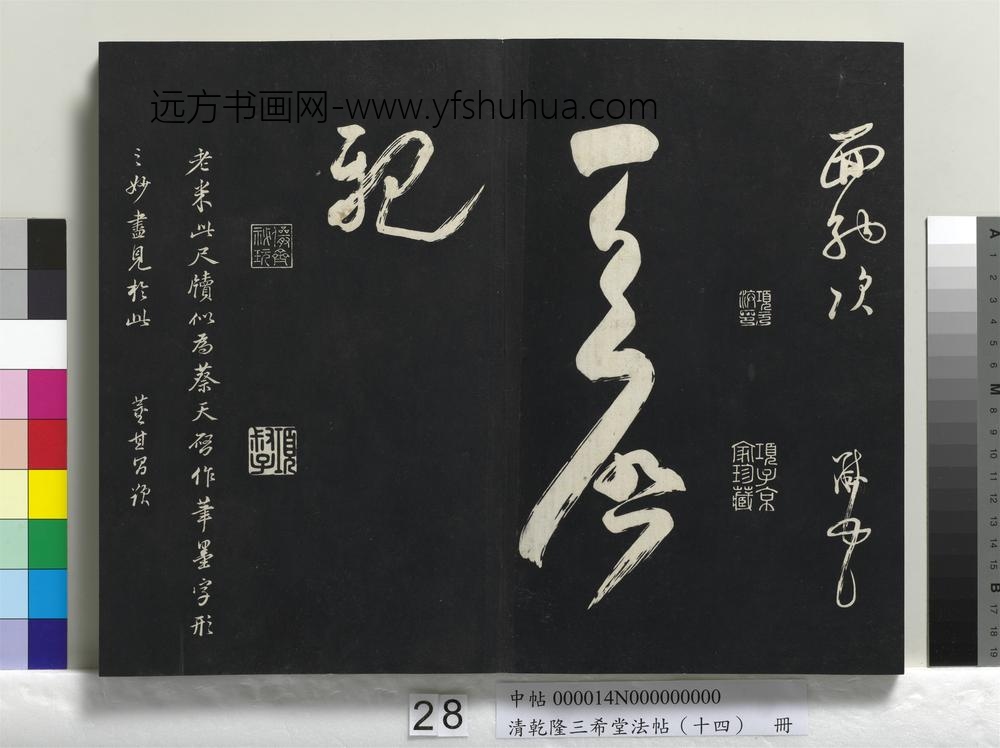 远方书画网-www.yfshuhua.com
面納次 黻頓首
項元汴印
項子京家珍藏
天啓
親
儼齋祕玩
項叔子
老米此尺牘似為蔡天啓作筆墨字形
之妙盡見於此 董其昌題
28
中帖 000014N000000000
清乾隆三希堂法帖（十四） 冊
A 1 2 3 4 5 6 M 8 9 10 11 12 13 14 15 B 17 18 19